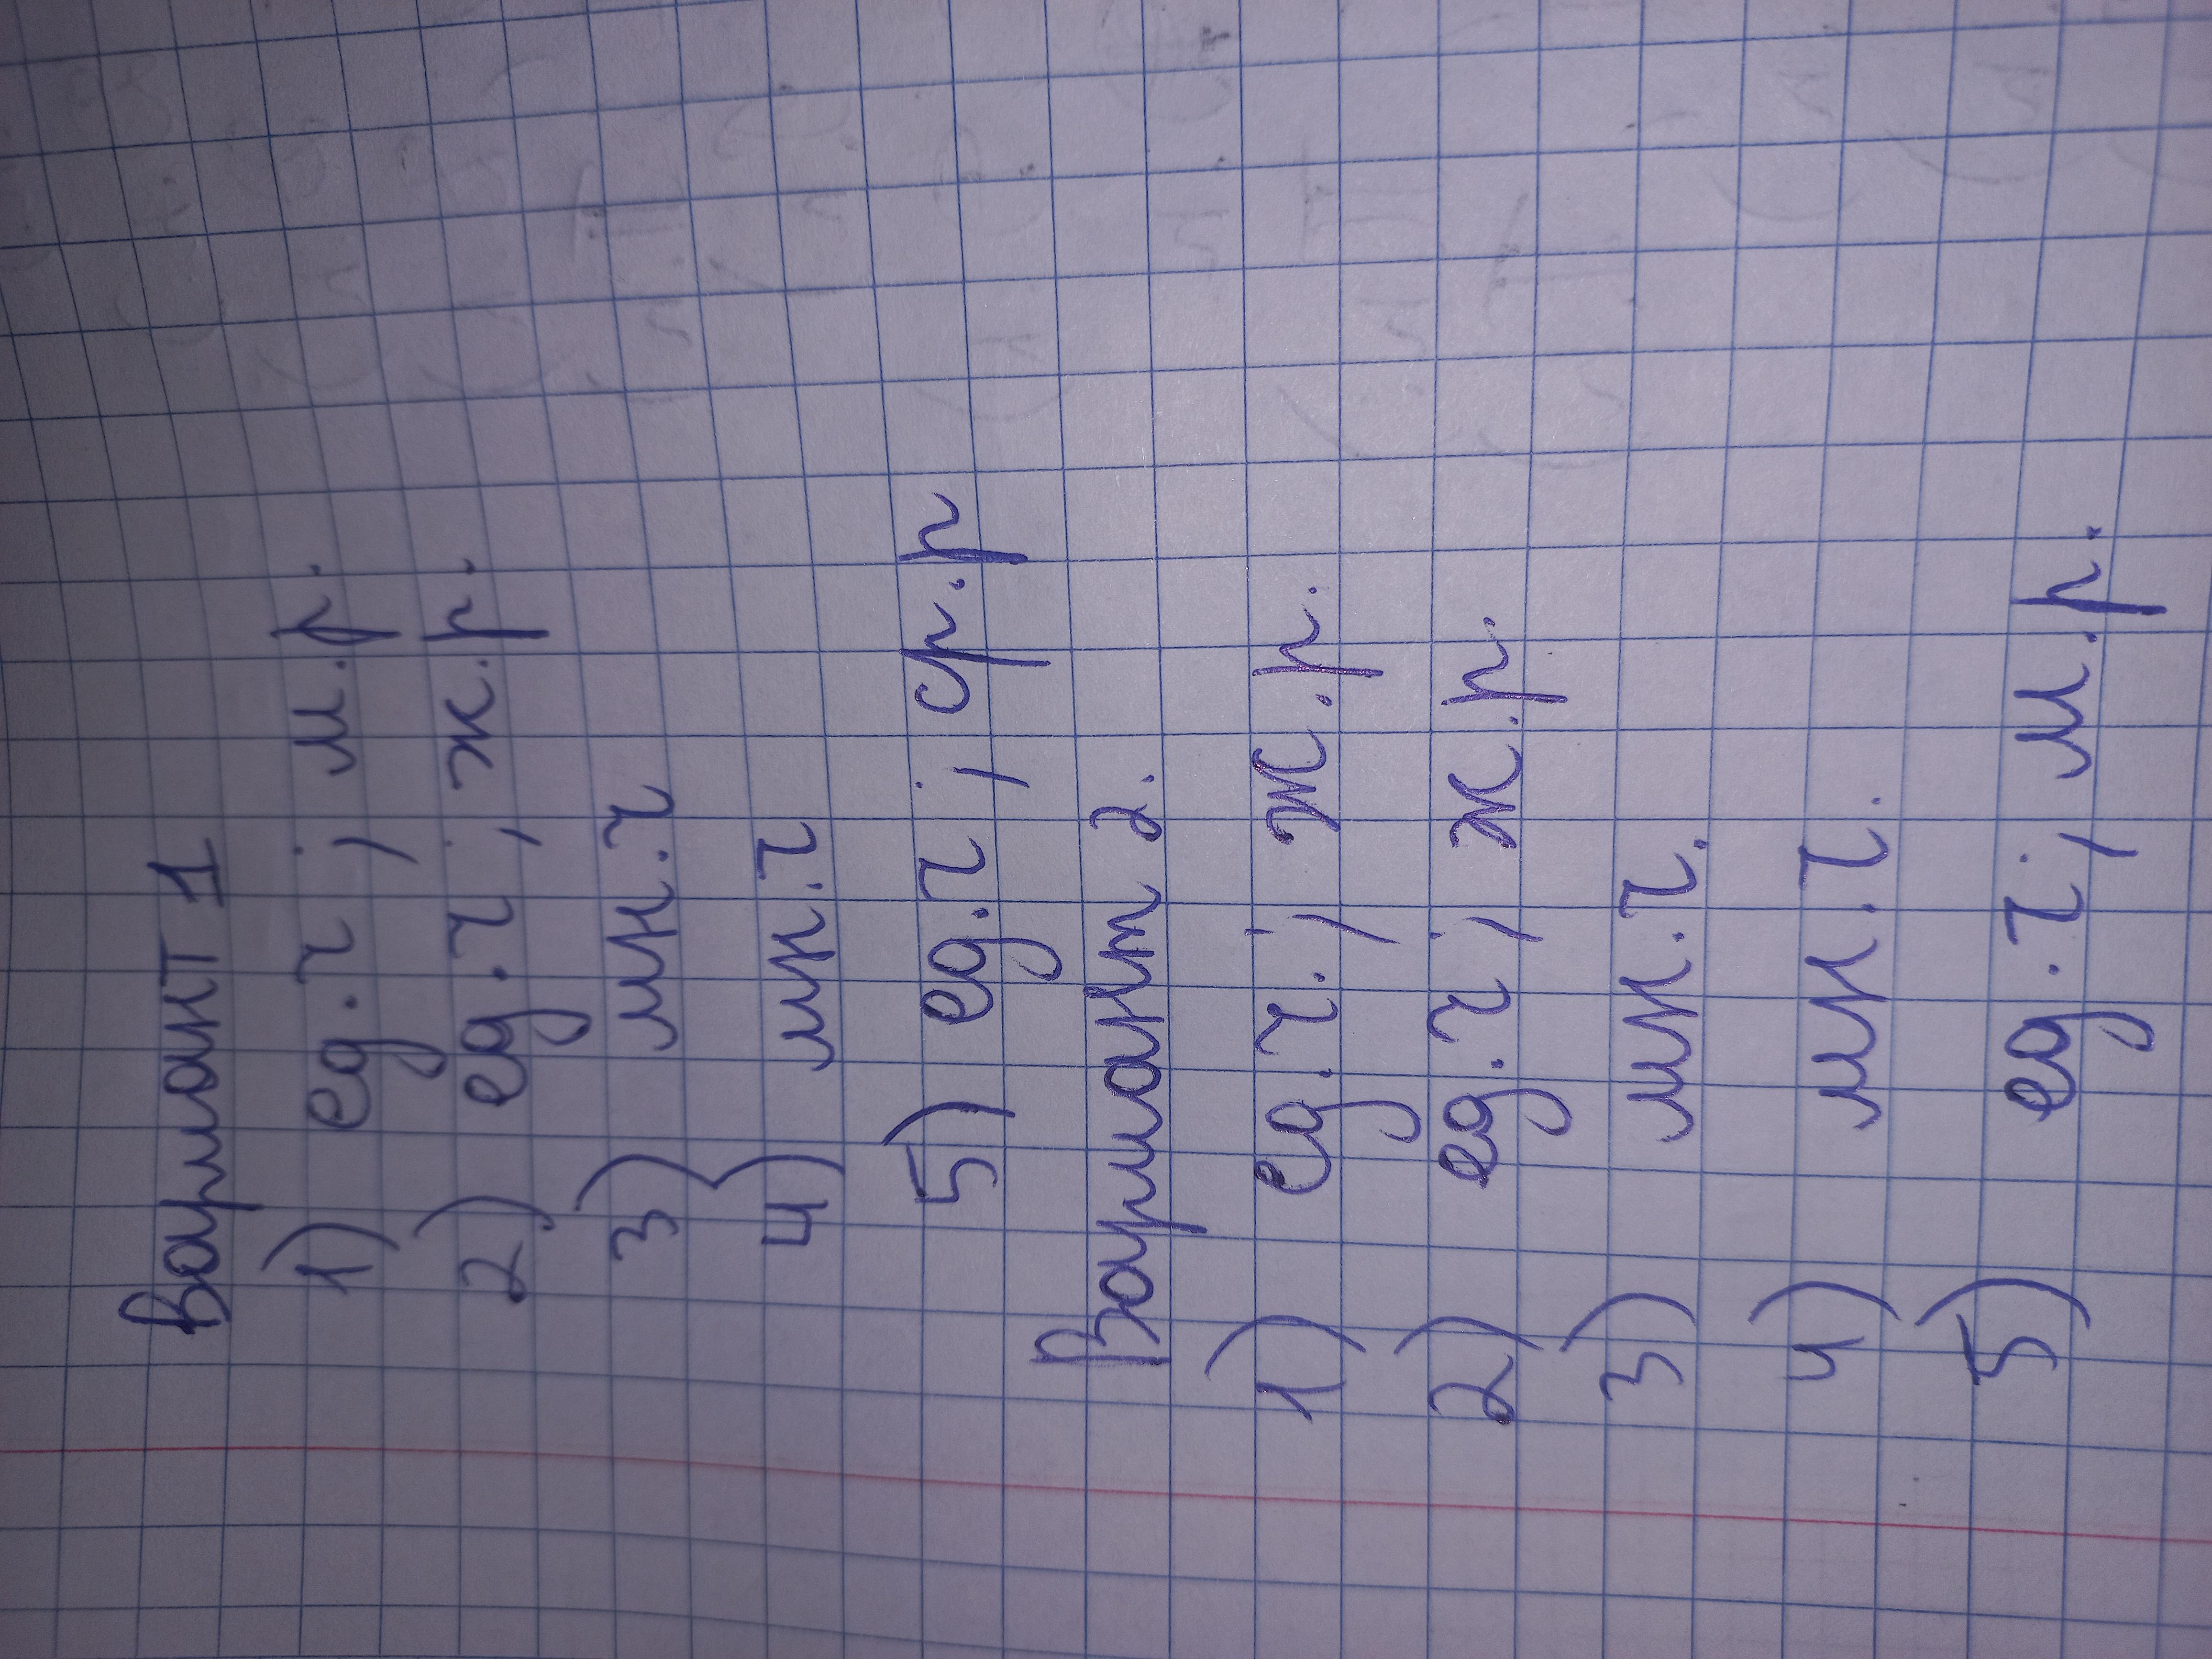 Вариант 1
1) ед.ч ; м.р.
2) ед.ч ; ж.р.
3) мн.ч
4) мн.ч
5) ед.ч ; ср.р
Вариант 2.
1) ед.ч.; ж.р.
2) ед.ч ; ж.р.
3) мн.ч.
4) мн.ч.
5) ед.ч; м.р.